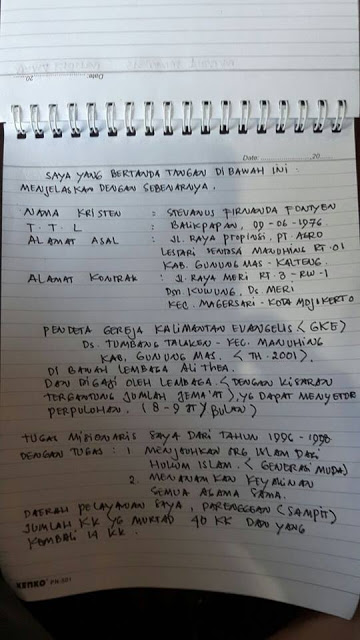 Date: 20
Date: 20
SAYA YANG BERTANDA TANGAN DI BAWAH INI :
MENJELASKAN DENGAN SEBENARNYA.
NAMA KRISTEN : STEVANUS FIRNANDA FONTYEN
T. T. L : BALIKPAPAN, 09-06-1976.
ALAMAT ASAL : JL. RAYA PROPINSI, PT. AGRO
LESTARI SENTOSA MANUHING RT. 01
KAB. GUNUNG MAS - KALTENG.
ALAMAT KONTRAK : JL. RAYA MERI RT. 3 - RW - 1
DSN. KUWUNG, DS. MERI
KEC. MAGERSARI - KOTA MOJOKERTO
PENDETA GEREJA KALIMANTAN EVANGELIS (GKE)
DS. TUMBANG TALAKEN - KEC. MANUHING
KAB. GUNUNG MAS. (TH. 2001).
DI BAWAH LEMBAGA ALITHEA.
DAN DIGAJI OLEH LEMBAGA. (DENGAN KISARAN
TERGANTUNG JUMLAH JEMA'AT), YG DAPAT MENYETOR
PERPULOHAN. (8 - 9 JT / BULAN)
TUGAS MISIONARIS SAYA DARI TAHUN 1996 - 1998
DENGAN TUGAS : 1. MENJAUHKAN ORG ISLAM DARI
HUKUM ISLAM. (GENERASI MUDA)
2. MENANAMKAN KEYAKINAN
SEMUA AGAMA SAMA.
DAERAH PELAYANAN SAYA, PARENGGEAN (SAMPIT)
JUMLAH KK YG MURTAD 40 KK DAN YANG
KEMBALI 14 KK.
KENKO PN-501